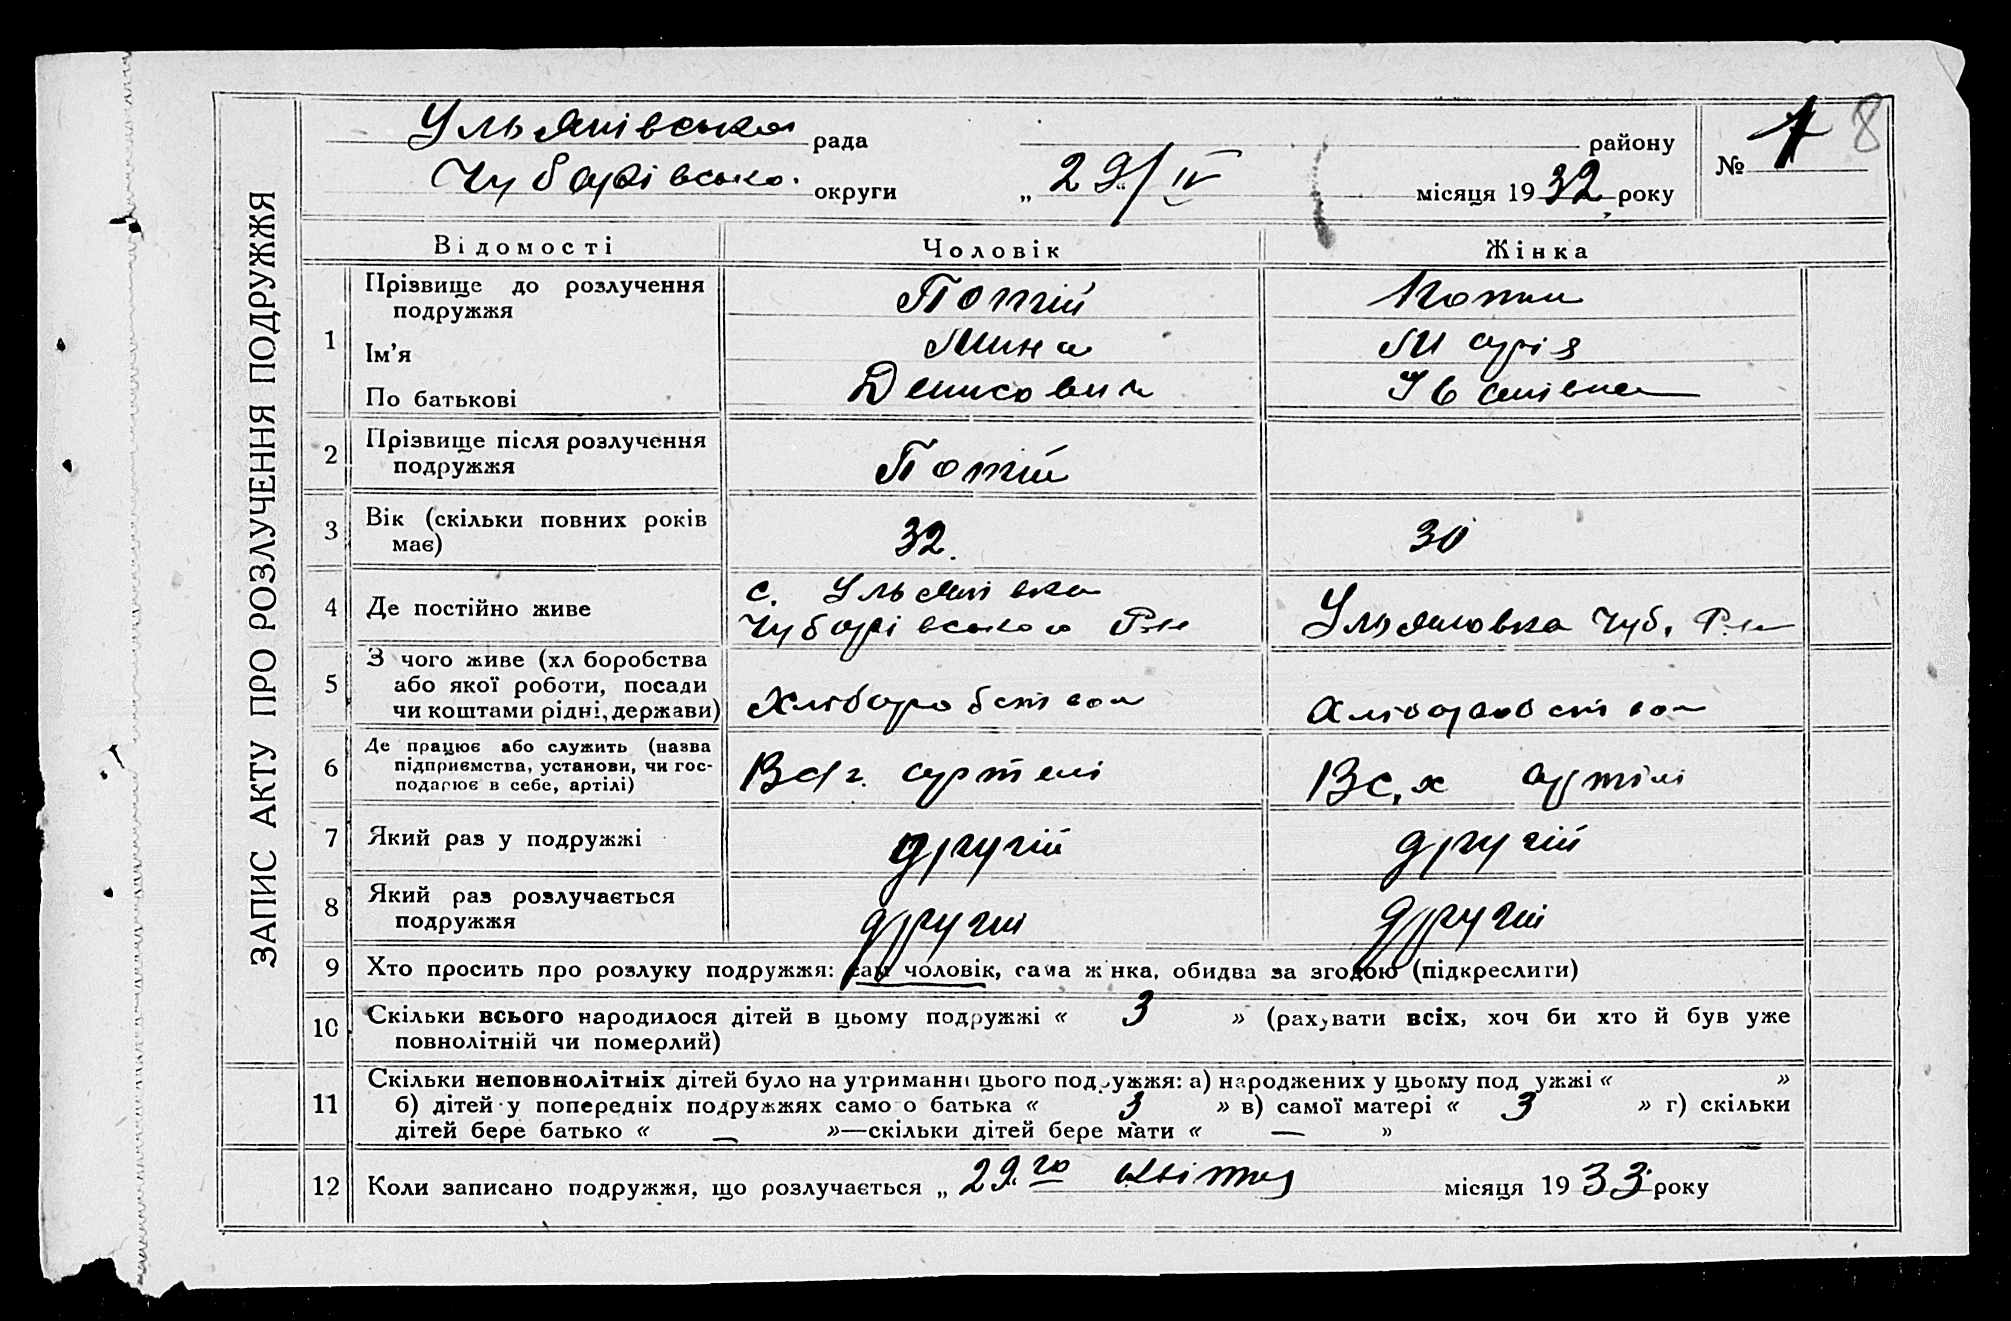 ЗАПИС АКТУ ПРО РОЗЛУЧЕННЯ ПОДРУЖЖЯ
Ульянівська рада району
Чубарівсько. округи „ 29/IV місяця 1932 року
№ 8
Відомості Чоловік Жінка
1 Прізвище до розлучення подружжя
Попій
Ім'я Мина Марія
По батькові Денисович Іванівна
2 Прізвище після розлучення
подружжя Попій
3 Вік (скільки повних років
має) 32. 30
4 Де постійно живе
с. Ульянівка
Чубарівського Р-н Ульяновка Чуб. Р-н
5 З чого живе (хліборобства
або якої роботи, посади
чи коштами рідні, держави)
Хліборобством Хліборобством
6 Де працює або служить (назва
підприємства, установи, чи гос-
подарює в себе, артілі)
артелі артілі
7 Який раз у подружжі другій другій
8 Який раз розлучається
подружжя другій другій
9 Хто просить про розлуку подружжя: сам чоловік, сама жінка, обидва за згодою (підкреслити)
10 Скільки всього народилося дітей в цьому подружжі « 3 » (рахувати всіх, хоч би хто й був уже
повнолітній чи померлий)
11 Скільки неповнолітніх дітей було на утриманні цього подружжя: а) народжених у цьому подружжі « »
б) дітей у попередніх подружжях самого батька « 3 » в) самої матері « 3 » г) скільки
дітей бере батько « — »—скільки дітей бере мати « — »
12 Коли записано подружжя, що розлучається „ 29го квітня місяця 1933 року